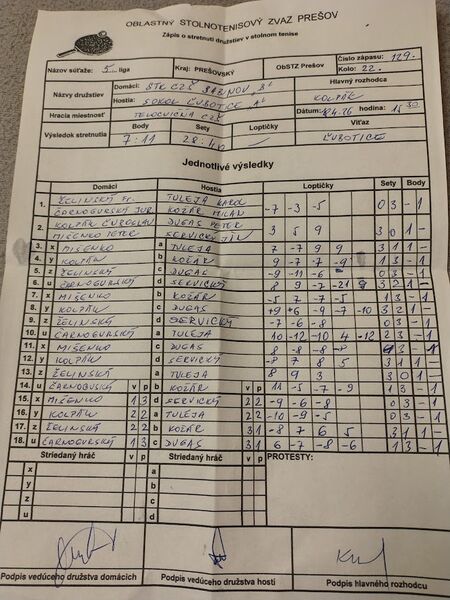 OBLASTNÝ STOLNOTENISOVÝ ZVÄZ PREŠOV
Zápis o stretnutí družstiev v stolnom tenise
Názov súťaže: 5. liga Kraj: PREŠOVSKÝ ObSTZ PREŠOV Číslo zápasu: 129.
Kolo: 22.
Názvy družstiev Domáci: STK CZŠ SABINOV "B" Hlavný rozhodca
Hostia: SOKOL ĽUBOTICE "A" KOLPÁK
Hracia miestnosť TELOCVIČŇA CZŠ Dátum: hodina: 15 30
Výsledok stretnutia Body Sety Loptičky Víťaz
7:11 28:40 ĽUBOTICE
Jednotlivé výsledky
Domáci Hostia Loptičky Sety Body
1. ŽELINSKÝ FR. TULEJA KAROL -7 -3 -5 0 3 - 1
ČARNOGURSKÝ JUR. KOŽÁR MILAN
2. KOLPÁK ĽUBOSLAV DUGAS PETER 3 5 9 3 0 1 -
MIŠENKO PETER SERVICKÝ JÁN
3. x MIŠENKO a TULEJA 7 -7 9 9 3 1 1 -
4. y KOLPÁK b KOŽÁR 9 -7 -7 -9 1 3 - 1
5. z ŽELINSKÝ c DUGAS -9 -11 -6 0 3 - 1
6. u ČARNOGURSKÝ d SERVICKÝ 8 9 -7 -21 9 3 2 1 -
7. x MIŠENKO b KOŽÁR -5 7 -7 -5 1 3 - 1
8. y KOLPÁK c DUGAS +9 +6 -9 -7 -10 3 2 1
9. z ŽELINSKÝ d SERVICKÝ -7 -6 -8 0 3 - 1
10. u ČARNOGURSKÝ a TULEJA 10 -12 -10 4 -12 2 3 - 1
11. x MIŠENKO c DUGAS -8 -8 -8 3 - 1
12. y KOLPÁK d SERVICKÝ -8 7 8 5 3 1 1 -
13. z ŽELINSKÝ a TULEJA 8 9 3 3 0 1 -
14. u ČARNOGUSKÝ v p b KOŽÁR v p 11 -5 -7 -9 1 3 - 1
15. x MIŠENKO 1 3 d SERVICKÝ 2 2 -9 -6 -8 0 3 - 1
16. y KOLPÁK 2 2 a TULEJA 2 2 -10 -9 -5 0 3 - 1
17. z ŽELINSKÝ 2 2 b KOŽÁR 3 1 8 -8 7 5 3 1 1 -
18. u ČARNOGURSKÝ 1 3 c DUGAS 3 1 6 -7 -8 -6 1 3 - 1
Striedaný hráč v p Striedaný hráč v p PROTESTY:
x a
y b
z c
u d
Podpis vedúceho družstva domácich Podpis vedúceho družstva hostí Podpis hlavného rozhodcu